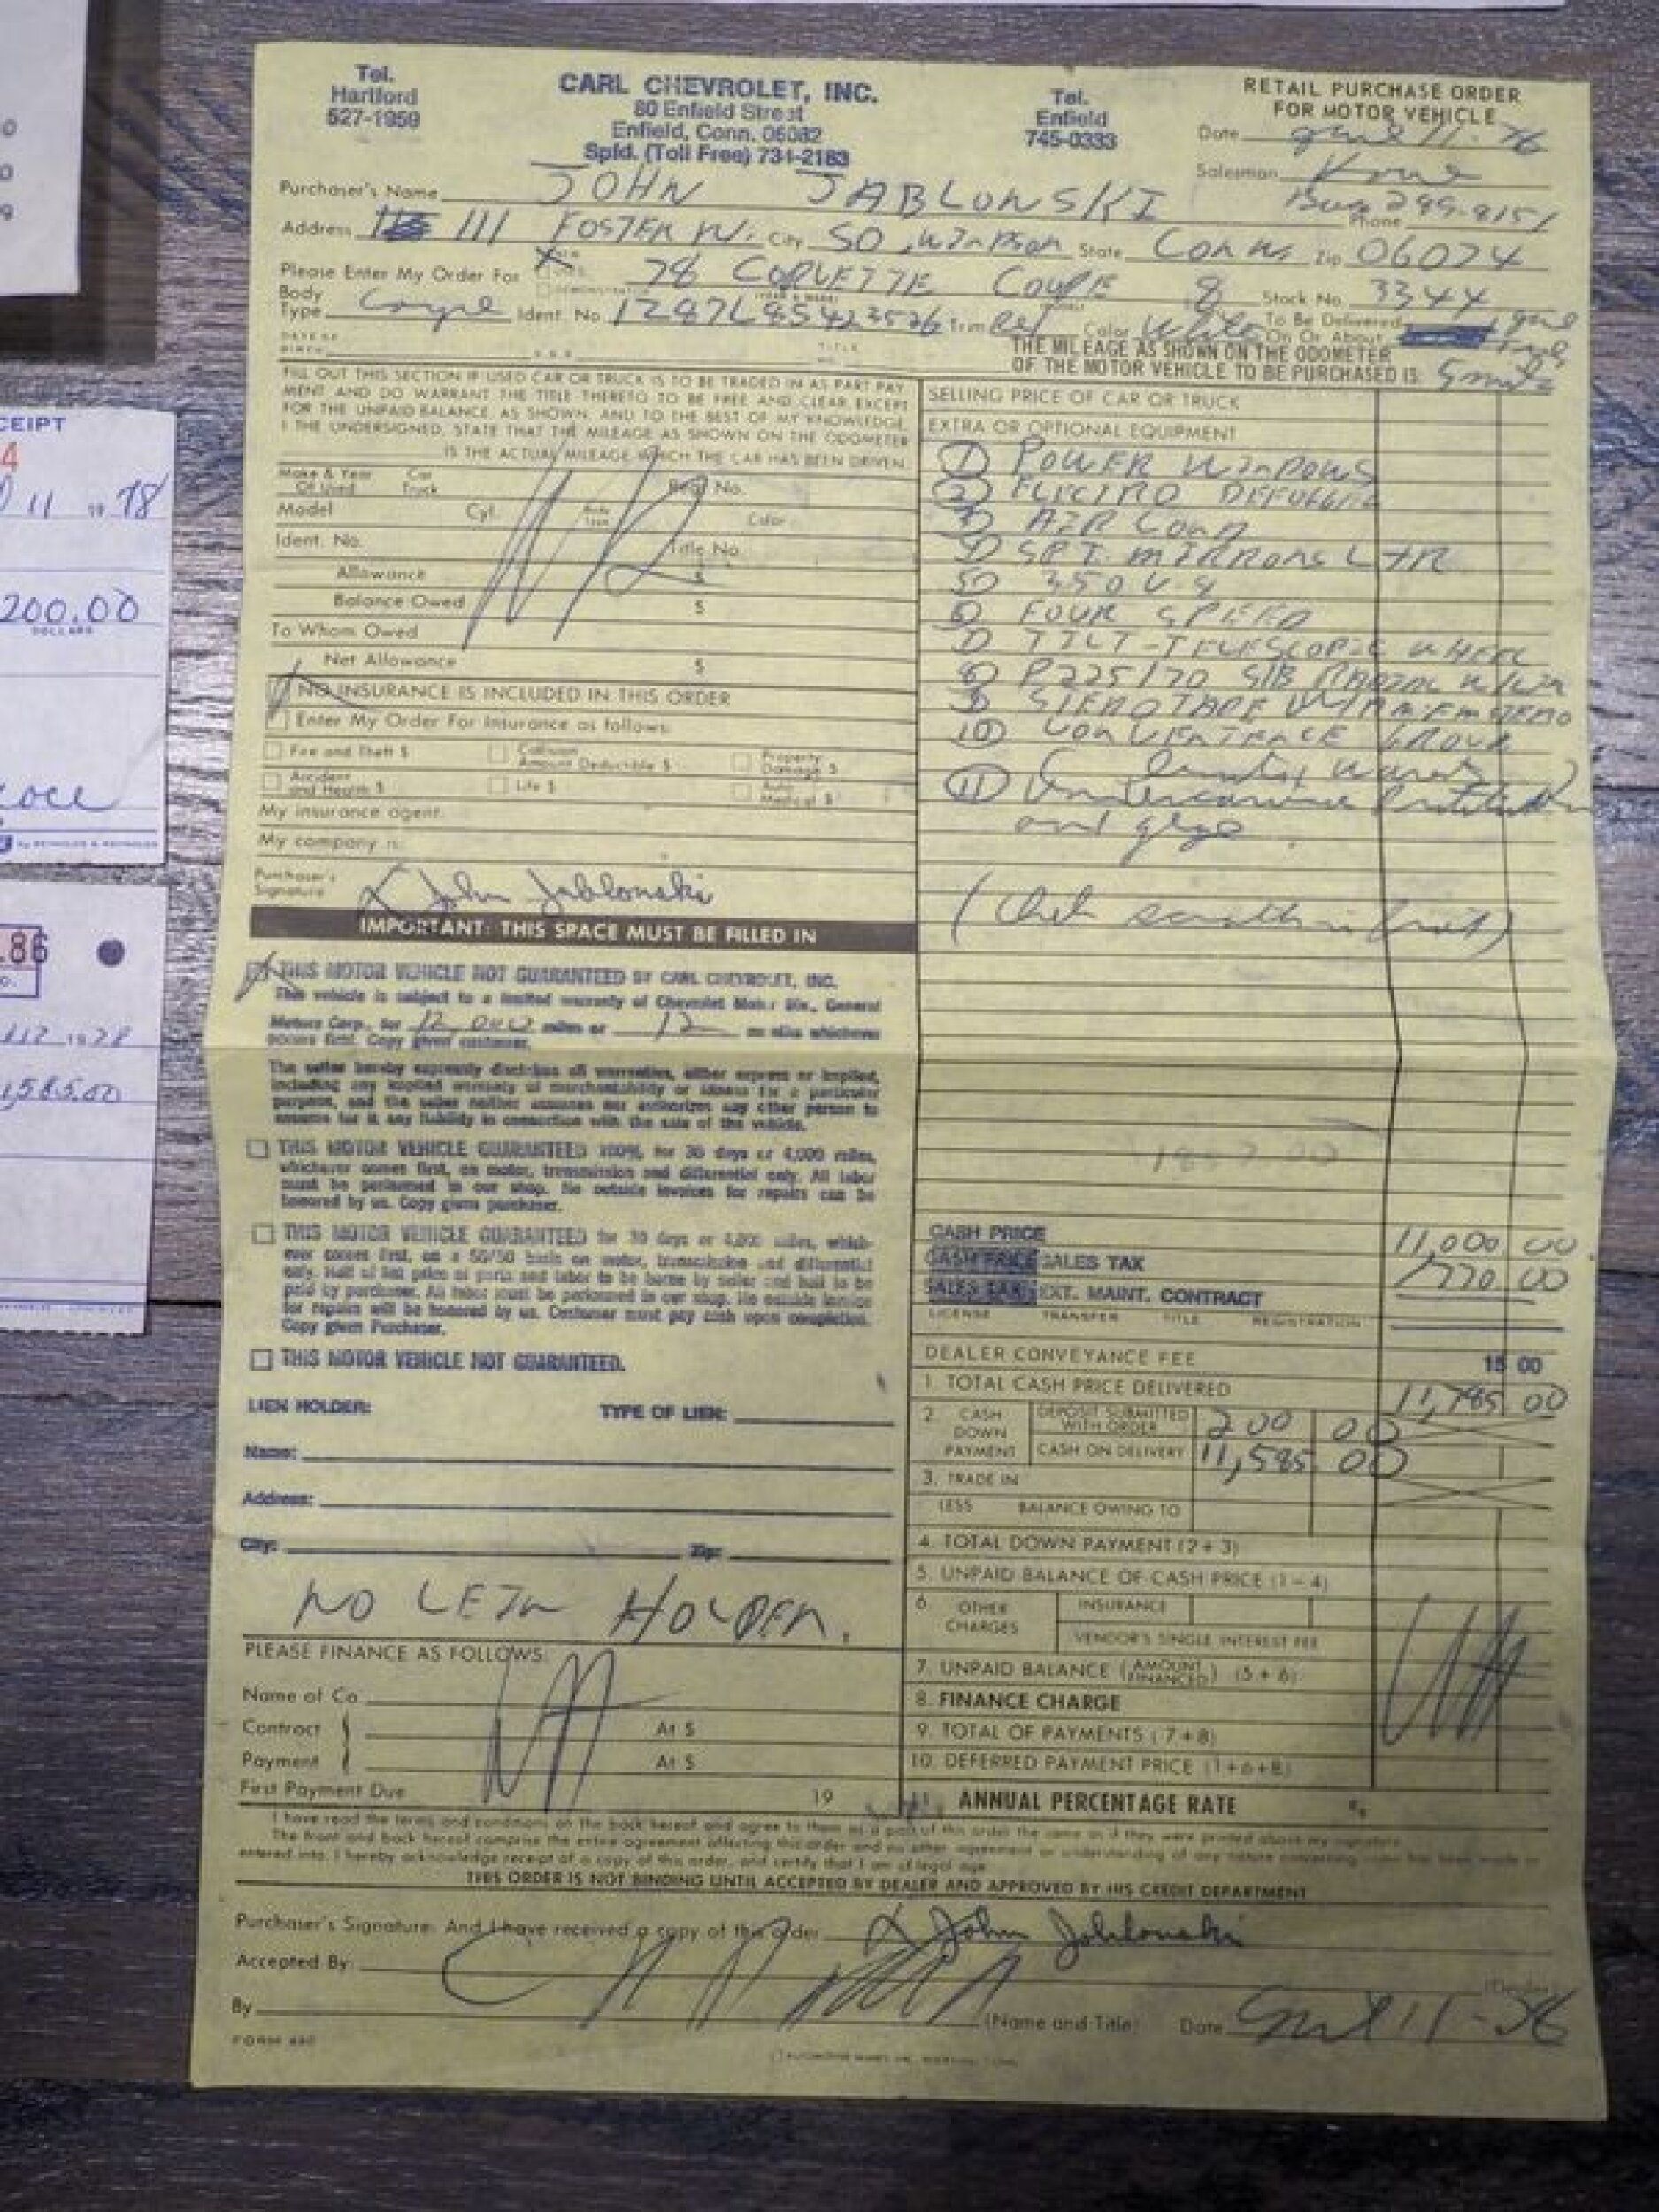 Tel.
Hartford
527-1959
CARL CHEVROLET, INC.
80 Enfield Street
Enfield, Conn. 06082
Spfd. (Toll Free) 734-2183
Tel.
Enfield
745-0333
RETAIL PURCHASE ORDER
FOR MOTOR VEHICLE
Date 11-78
Salesman
Purchaser's Name JOHN JABLONSKI
Bus 289-8151
Phone
Address 111 FOSTER City SO. State CONN. Zip 06074
Please Enter My Order For 78 CORVETTE COUPE 8 Stock No. 3344
Body
Type Coupe Ident. No. 1Z87L8S423526 Trim Color White To Be Delivered
On Or About
THE MILEAGE AS SHOWN ON THE ODOMETER
OF THE MOTOR VEHICLE TO BE PURCHASED IS:
FILL OUT THIS SECTION IF USED CAR OR TRUCK IS TO BE TRADED IN AS PART PAY
MENT AND DO WARRANT THE TITLE THERETO TO BE FREE AND CLEAR EXCEPT
FOR THE UNPAID BALANCE, AS SHOWN, AND TO THE BEST OF MY KNOWLEDGE,
I THE UNDERSIGNED, STATE THAT THE MILEAGE AS SHOWN ON THE ODOMETER
IS THE ACTUAL MILEAGE WHICH THE CAR HAS BEEN DRIVEN.
Make & Year Car
Of Used Truck Reg. No.
Model Cyl. Color
Ident. No. Title No.
Allowance $
Balance Owed $
To Whom Owed
Net Allowance $
NO INSURANCE IS INCLUDED IN THIS ORDER
Enter My Order For Insurance as follows:
Fire and Theft $ Collision Amount Deductible $ Property Damage $
Accident and Health $ Life $ Auto Medical $
My insurance agent:
My company is:
Purchaser's
Signature X John Jablonski
SELLING PRICE OF CAR OR TRUCK
EXTRA OR OPTIONAL EQUIPMENT
1 POWER WINDOWS
2 ELECTRO DEFOGGER
3 AIR COND
4 SPT. MIRRORS L+R
5 350 V-8
6 FOUR SPEED
7 TILT-TELESCOPIC WHEEL
8 P225/70 S/B RADIAL W/
9 STEREO TAPE W/ AM FM STEREO
10 CONVENIENCE GROUP
11
and
IMPORTANT: THIS SPACE MUST BE FILLED IN
THIS MOTOR VEHICLE NOT GUARANTEED BY CARL CHEVROLET, INC.
This vehicle is subject to a limited warranty of Chevrolet Motor Div., General
Motors Corp., for 12,000 miles or 12 months whichever
occurs first. Copy given customer.
The seller hereby expressly disclaims all warranties, either express or implied,
including any implied warranty of merchantability or fitness for a particular
purpose, and the seller neither assumes nor authorizes any other person to
assume for it any liability in connection with the sale of the vehicle.
THIS MOTOR VEHICLE GUARANTEED 100% for 30 days or 4,000 miles,
whichever comes first, on motor, transmission and differential only. All labor
must be performed in our shop. No outside invoices for repairs can be
honored by us. Copy given purchaser.
THIS MOTOR VEHICLE GUARANTEED for 30 days or 4,000 miles, which-
ever comes first, on a 50/50 basis on motor, transmission and differential
only. Half of list price of parts and labor to be borne by seller and half to be
paid by purchaser. All labor must be performed in our shop. No outside invoice
for repairs will be honored by us. Customer must pay cash upon completion.
Copy given Purchaser.
THIS MOTOR VEHICLE NOT GUARANTEED.
LIEN HOLDER: TYPE OF LIEN:
Name:
Address:
City: Zip:
NO LEIN HOLDER.
PLEASE FINANCE AS FOLLOWS:
Name of Co.
Contract At $
Payment At $
First Payment Due 19
CASH PRICE 11,000 00
CASH PRICE SALES TAX 770 00
SALES TAX EXT. MAINT. CONTRACT
LICENSE TRANSFER TITLE REGISTRATION
DEALER CONVEYANCE FEE 15 00
1. TOTAL CASH PRICE DELIVERED 11,785 00
2. CASH DOWN PAYMENT DEPOSIT SUBMITTED WITH ORDER 200 00
CASH ON DELIVERY 11,585 00
3. TRADE IN
LESS BALANCE OWING TO
4. TOTAL DOWN PAYMENT (2 + 3)
5. UNPAID BALANCE OF CASH PRICE (1 - 4)
6. OTHER CHARGES INSURANCE
VENDOR'S SINGLE INTEREST FEE
7. UNPAID BALANCE (AMOUNT FINANCED) (5 + 6)
8. FINANCE CHARGE
9. TOTAL OF PAYMENTS (7+8)
10. DEFERRED PAYMENT PRICE (1+6+8)
11. ANNUAL PERCENTAGE RATE %
I have read the terms and conditions on the back hereof and agree to them as a part of this order the same as if they were printed above my signature.
The front and back hereof comprise the entire agreement affecting this order and no other agreement or understanding of any nature concerning same has been made or
entered into. I hereby acknowledge receipt of a copy of this order, and certify that I am of legal age.
THIS ORDER IS NOT BINDING UNTIL ACCEPTED BY DEALER AND APPROVED BY HIS CREDIT DEPARTMENT
Purchaser's Signature: And I have received a copy of this order X John Jablonski
Accepted By:
(Dealer)
By (Name and Title) Date 11-78
CEIPT
11 19 78
200.00
DOLLARS
.86
12 1978
1,585.00